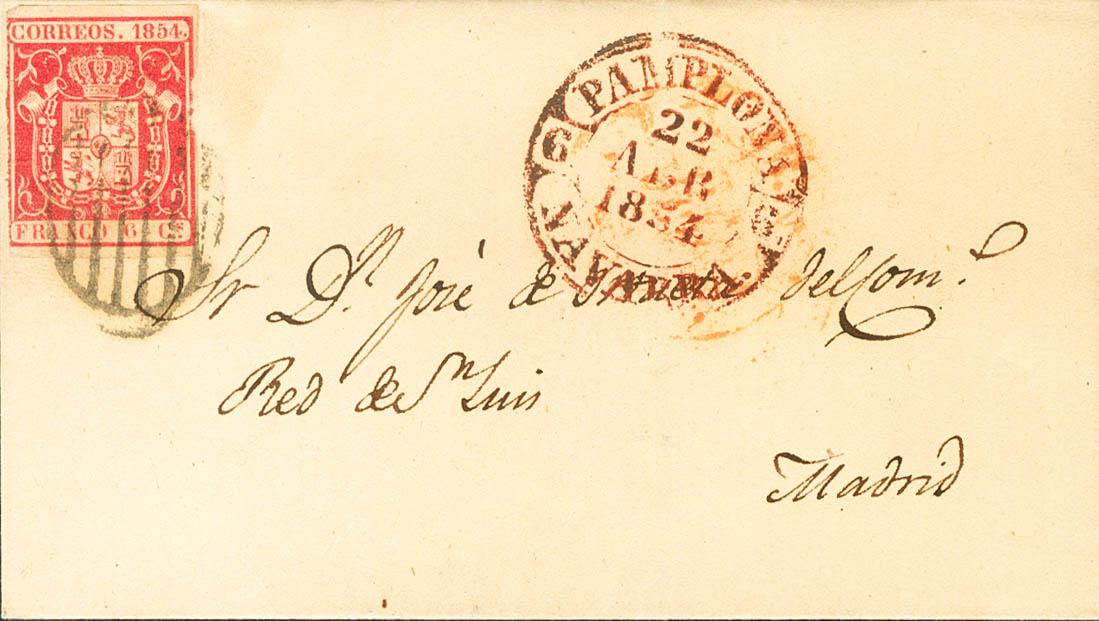 CORREOS. 1854.
FRANCO 6 Cs
PAMPLONA
22
ABR
1854
NAVARRA
Sr Dn. José de delCom.º
Red de Sn Luis
Madrid